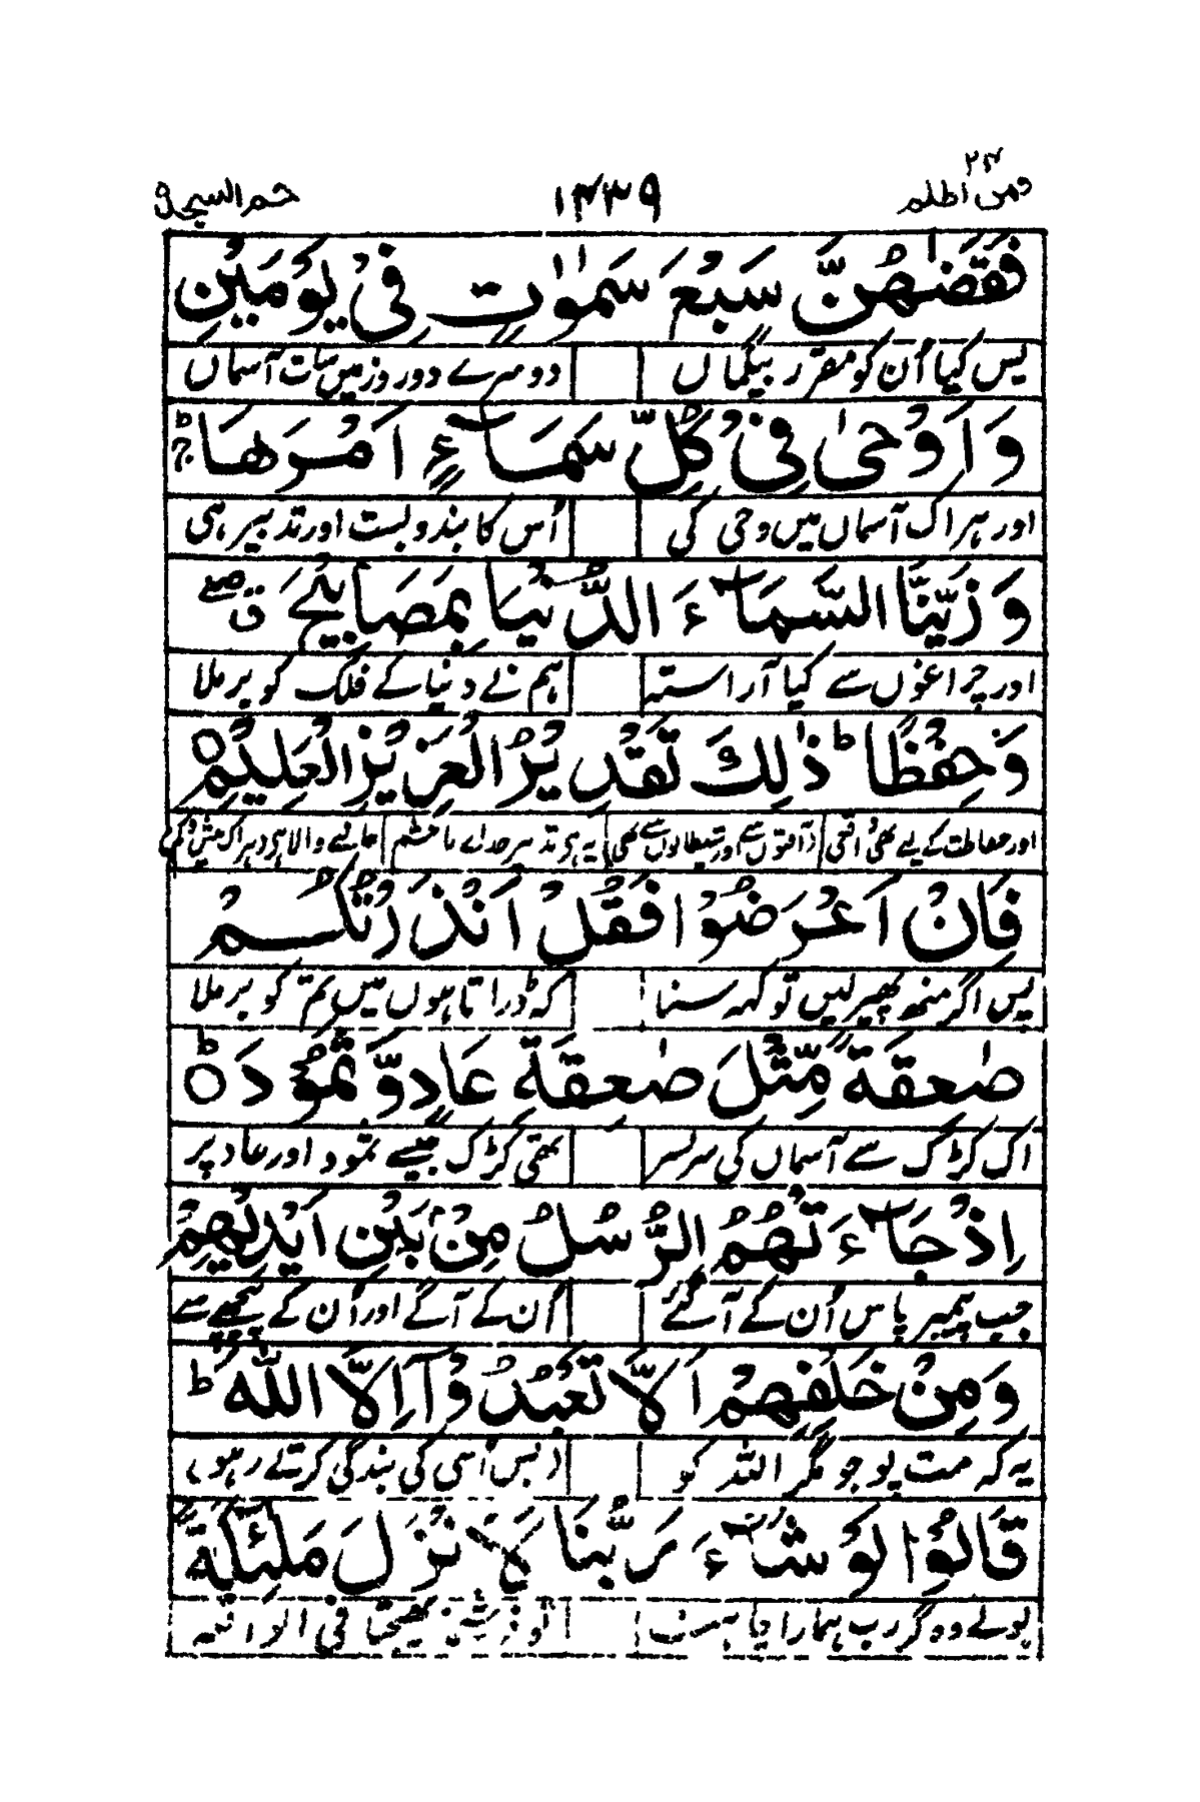 فمن اظلم ۲۴
۱۴۳۹
حم السجدۃ
فَقَضٰهُنَّ سَبْعَ سَمٰوٰتٍ فِيْ يَوْمَيْنِ
پس کیا اُن کو مقرر بیگماں دوسرے دو روز میں سات آسماں
وَاَوْحٰى فِيْ كُلِّ سَمَآءٍ اَمْرَهَا ؕ
اور ہر اک آسماں میں وحی کی اُس کا بندوبست اور تدبیر ہی
وَزَيَّنَّا السَّمَآءَ الدُّنْيَا بِمَصَابِيْحَ ۖق
اور چراغوں سے کیا آراستہ ہم نے دنیا کے فلک کو برملا
وَحِفْظًا ؕ ذٰلِكَ تَقْدِيْرُ الْعَزِيْزِ الْعَلِيْمِ ○
اور حفاظت کے لیے بھی اور شیطانوں سے بھی یہ ہی تدبیر والا
فَاِنْ اَعْرَضُوْا فَقُلْ اَنْذَرْتُكُمْ
پس اگر منھ پھیر لیں تو کہہ سنا کہ ڈراتا ہوں میں تم کو برملا
صٰعِقَةً مِّثْلَ صٰعِقَةِ عَادٍ وَّثَمُوْدَ ○ؕ
اک کڑک سے آسماں کی سربسر تھی کڑک جیسے ثمود اور عاد پر
اِذْ جَآءَتْهُمُ الرُّسُلُ مِنْۢ بَيْنِ اَيْدِيْهِمْ
جب پیمبر پاس اُن کے آگئے اُن کے آگے اور اُن کے پیچھے سے
وَمِنْ خَلْفِهِمْ اَلَّا تَعْبُدُوْٓا اِلَّا اللّٰهَ ؕ
یہ کہ مت پوجو مگر اللہ کو (بس اُسی کی بندگی کرتے رہو)
قَالُوْا لَوْ شَآءَ رَبُّنَا لَاَنْزَلَ مَلٰٓئِكَةً
بولے وہ گر رب ہمارا چاہتا تو فرشتے بھیجتا فی